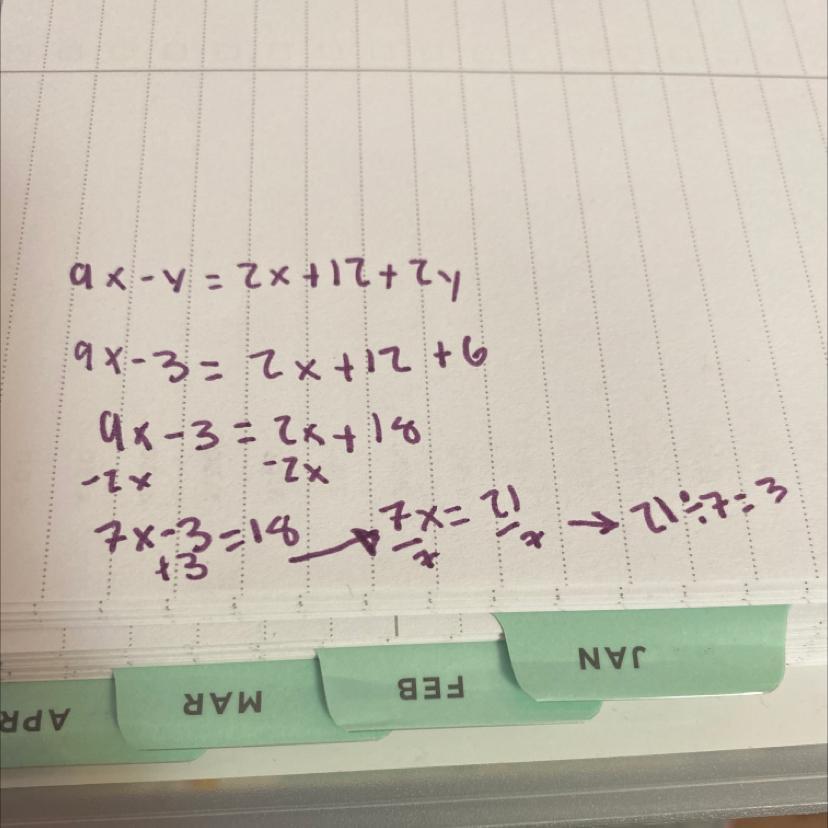 9x-y=2x+12+2y
9x-3=2x+12+6
9x-3=2x+18
-2x -2x
7x-3=18 → 7x=21 → 21÷7=3
+3 — x — x
APR MAR FEB JAN